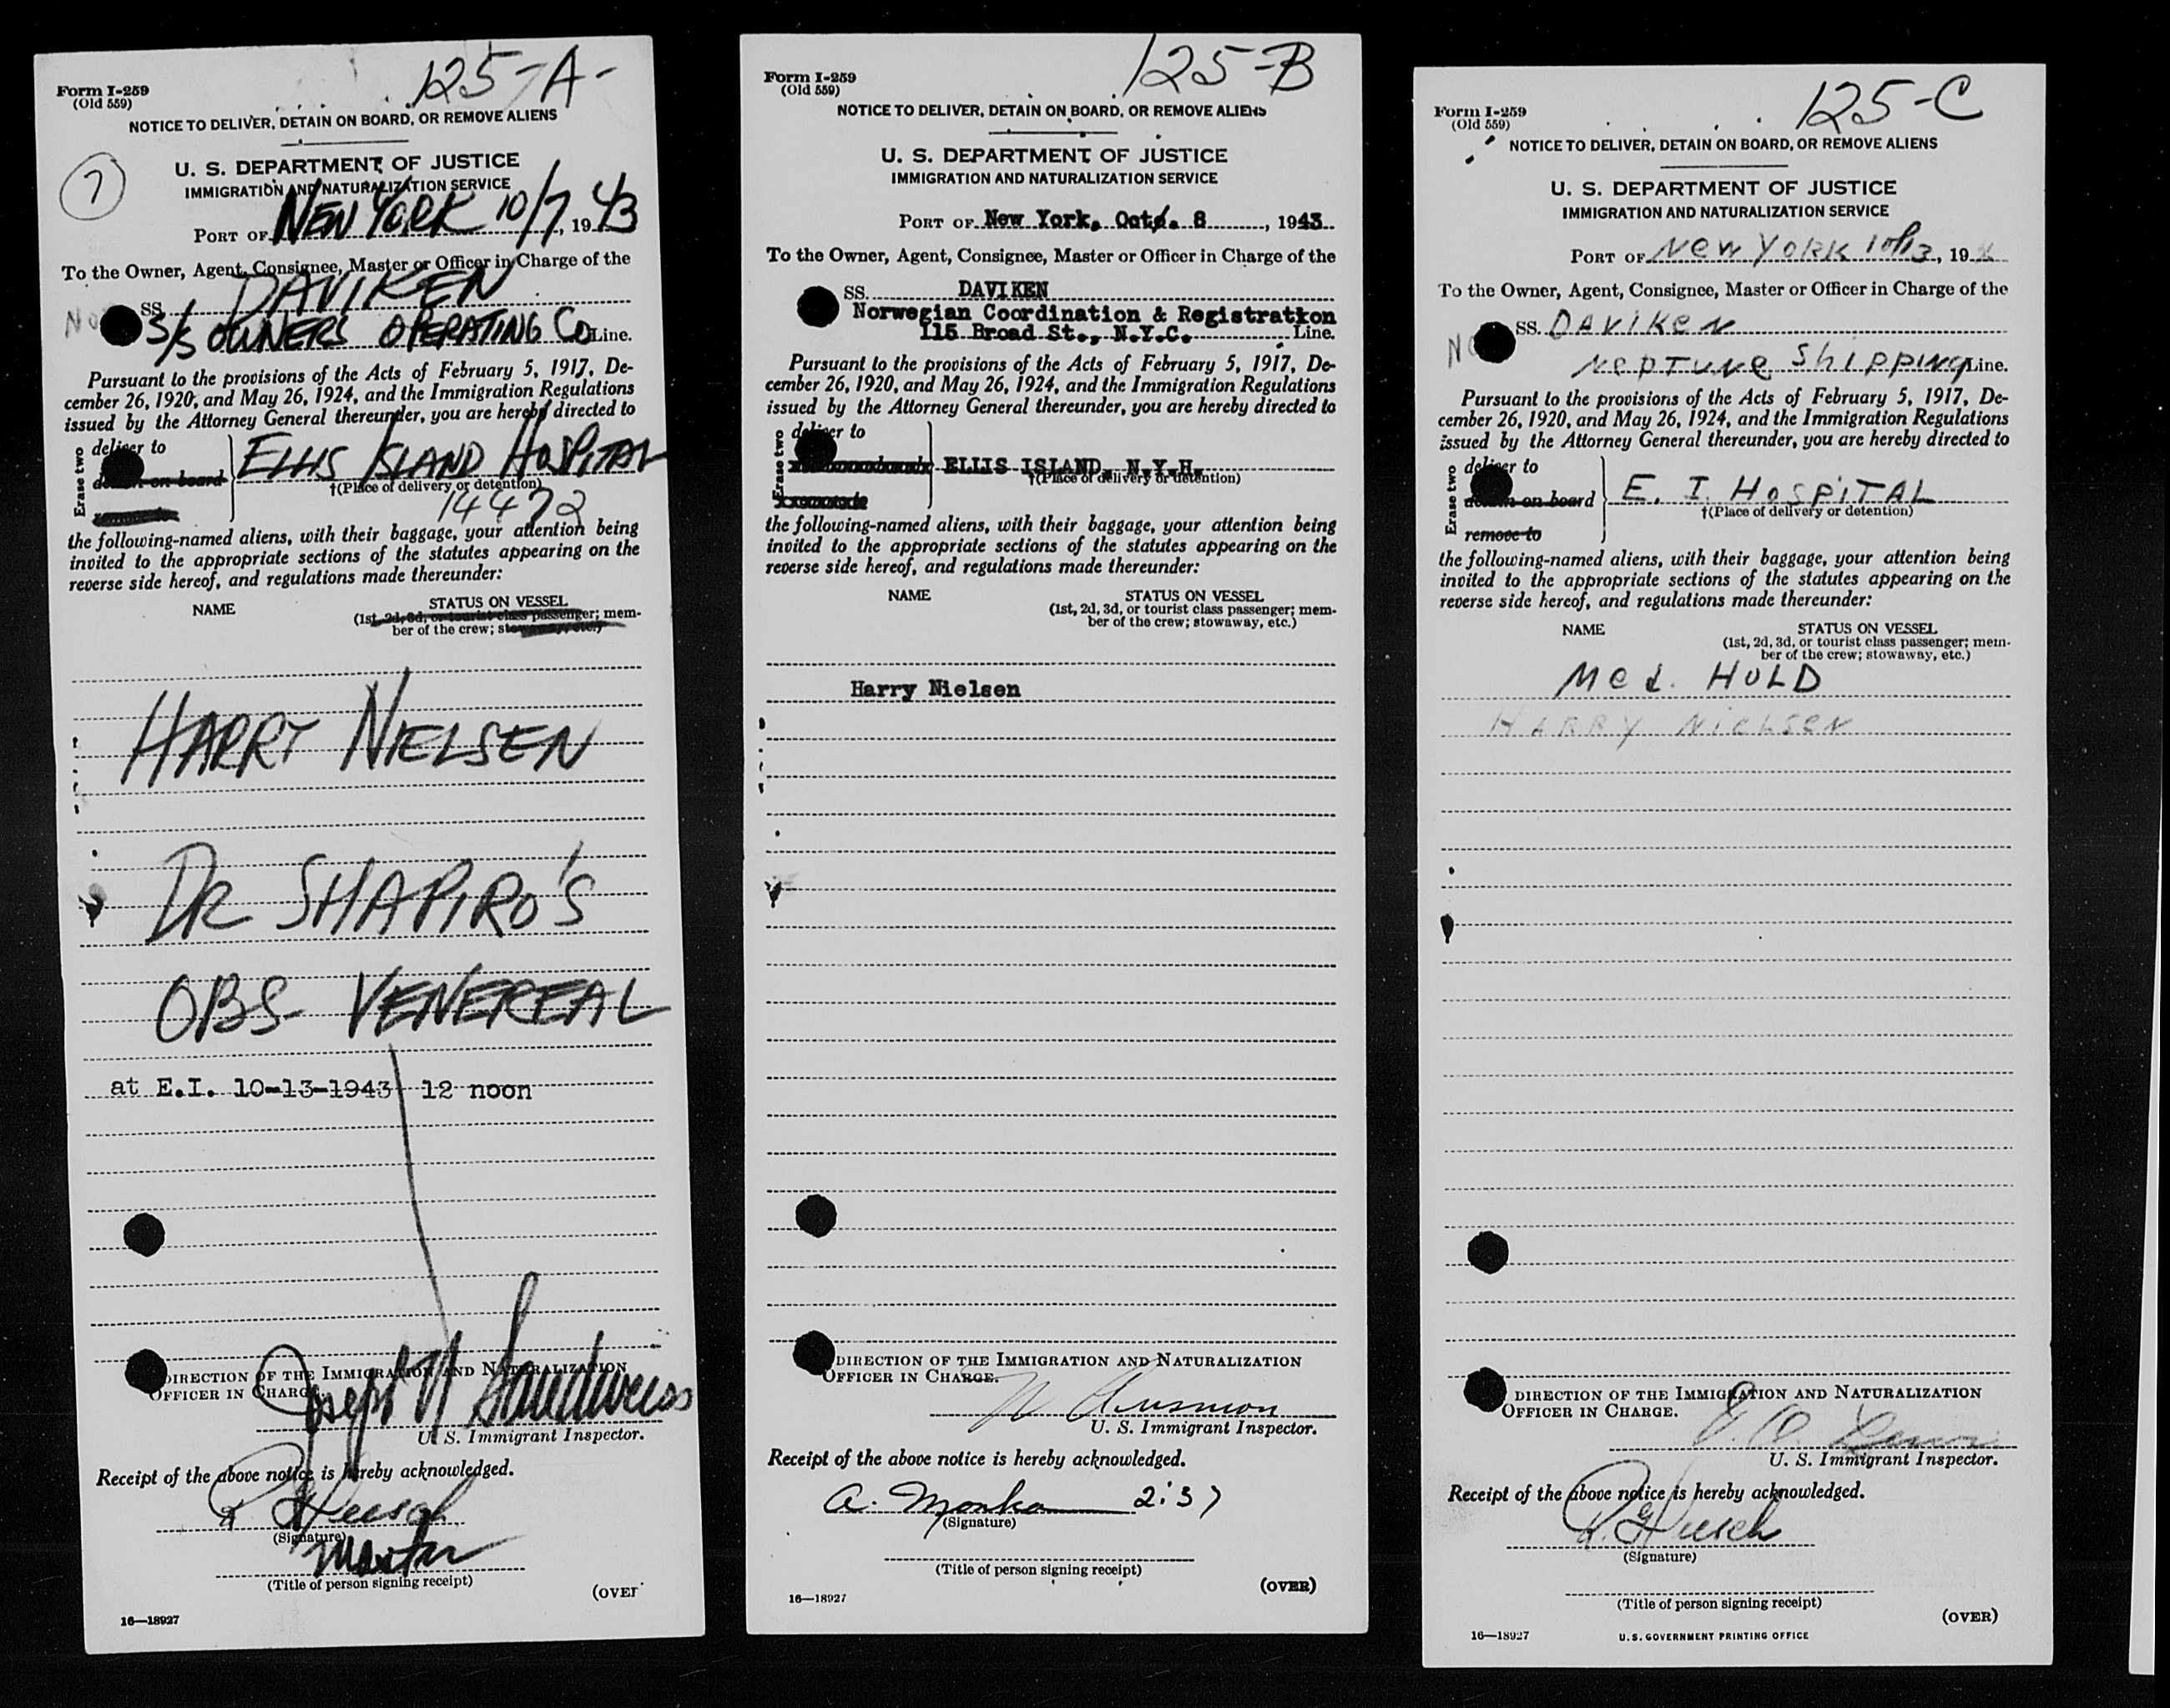 125-A-
Form I-259
(Old 559)
NOTICE TO DELIVER, DETAIN ON BOARD, OR REMOVE ALIENS
7
U. S. DEPARTMENT OF JUSTICE
IMMIGRATION AND NATURALIZATION SERVICE
PORT OF NEW YORK 10/7, 1943
To the Owner, Agent, Consignee, Master or Officer in Charge of the
SS. DAVIKEN
S/S OWNERS OPERATING Co Line.
Pursuant to the provisions of the Acts of February 5, 1917, De-
cember 26, 1920, and May 26, 1924, and the Immigration Regulations
issued by the Attorney General thereunder, you are hereby directed to
Erase two
deliver to
detain on board
ELLIS ISLAND HOSPITAL
†(Place of delivery or detention)
14472
the following-named aliens, with their baggage, your attention being
invited to the appropriate sections of the statutes appearing on the
reverse side hereof, and regulations made thereunder:
NAME STATUS ON VESSEL
(1st, 2d, 3d, or tourist class passenger; mem-
ber of the crew; stowaway, etc.)
HARRY NIELSEN
DR SHAPIRO'S
OBS- VENEREAL
at E.I. 10-13-1943 12 noon
DIRECTION OF THE IMMIGRATION AND NATURALIZATION
OFFICER IN CHARGE.
Joseph
U. S. Immigrant Inspector.
Receipt of the above notice is hereby acknowledged.
(Signature)
Master
(Title of person signing receipt)
(OVER
16—18927
125-B
Form I-259
(Old 559)
NOTICE TO DELIVER, DETAIN ON BOARD, OR REMOVE ALIENS
U. S. DEPARTMENT OF JUSTICE
IMMIGRATION AND NATURALIZATION SERVICE
PORT OF New York, Oct. 8, 1943
To the Owner, Agent, Consignee, Master or Officer in Charge of the
SS. DAVIKEN
Norwegian Coordination & Registration
115 Broad St., N.Y.C. Line.
Pursuant to the provisions of the Acts of February 5, 1917, De-
cember 26, 1920, and May 26, 1924, and the Immigration Regulations
issued by the Attorney General thereunder, you are hereby directed to
Erase two
deliver to
ELLIS ISLAND, N.Y.H.
†(Place of delivery or detention)
the following-named aliens, with their baggage, your attention being
invited to the appropriate sections of the statutes appearing on the
reverse side hereof, and regulations made thereunder:
NAME STATUS ON VESSEL
(1st, 2d, 3d, or tourist class passenger; mem-
ber of the crew; stowaway, etc.)
Harry Nielsen
DIRECTION OF THE IMMIGRATION AND NATURALIZATION
OFFICER IN CHARGE.
U. S. Immigrant Inspector.
Receipt of the above notice is hereby acknowledged.
a. 2:37
(Signature)
(Title of person signing receipt)
(OVER)
16—18927
125-C
Form I-259
(Old 559)
NOTICE TO DELIVER, DETAIN ON BOARD, OR REMOVE ALIENS
U. S. DEPARTMENT OF JUSTICE
IMMIGRATION AND NATURALIZATION SERVICE
PORT OF New YORK 10/13, 19
To the Owner, Agent, Consignee, Master or Officer in Charge of the
SS. DAVIKEN
NEPTUNE SHIPPING Line.
Pursuant to the provisions of the Acts of February 5, 1917, De-
cember 26, 1920, and May 26, 1924, and the Immigration Regulations
issued by the Attorney General thereunder, you are hereby directed to
Erase two
deliver to
detain on board
remove to
E. I. HOSPITAL
†(Place of delivery or detention)
the following-named aliens, with their baggage, your attention being
invited to the appropriate sections of the statutes appearing on the
reverse side hereof, and regulations made thereunder:
NAME STATUS ON VESSEL
(1st, 2d, 3d, or tourist class passenger; mem-
ber of the crew; stowaway, etc.)
Med. HOLD
HARRY NIELSEN
DIRECTION OF THE IMMIGRATION AND NATURALIZATION
OFFICER IN CHARGE.
U. S. Immigrant Inspector.
Receipt of the above notice is hereby acknowledged.
(Signature)
(Title of person signing receipt)
(OVER)
16—18927
U. S. GOVERNMENT PRINTING OFFICE